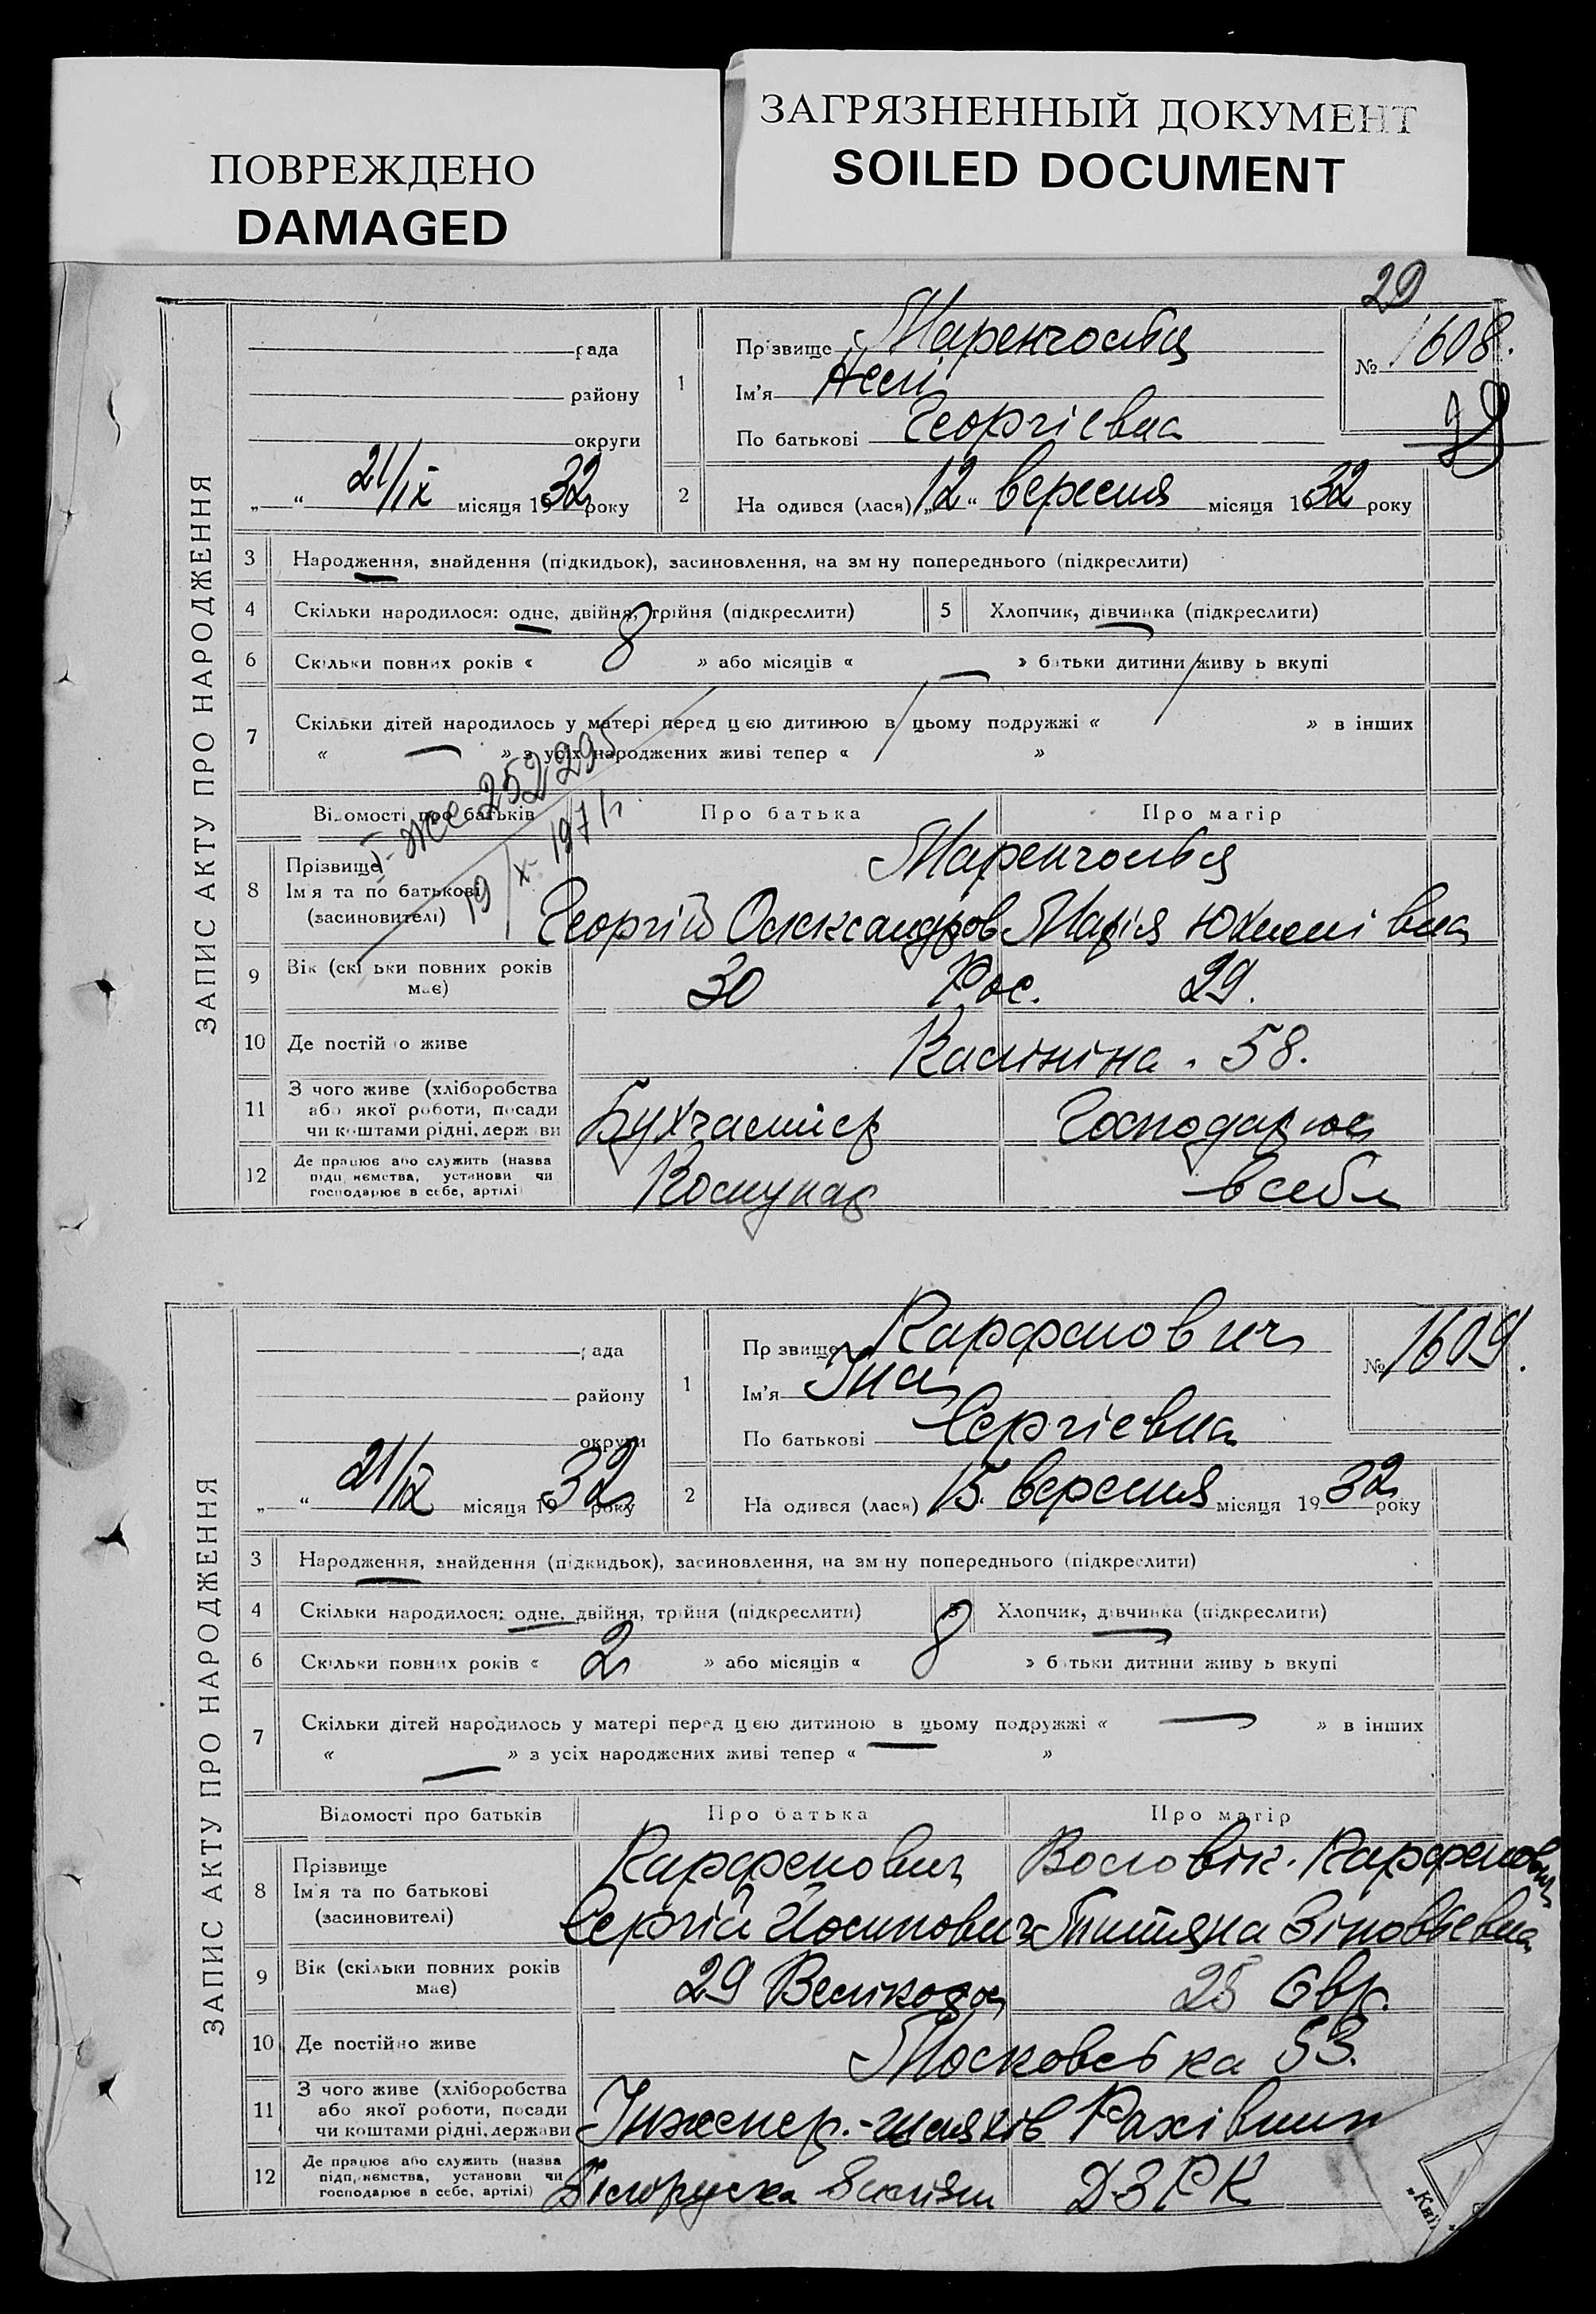 ПОВРЕЖДЕНО
DAMAGED
ЗАГРЯЗНЕННЫЙ ДОКУМЕНТ
SOILED DOCUMENT
29
ЗАПИС АКТУ ПРО НАРОДЖЕННЯ
рада
району
округи
„ “ 21/IX місяця 1932 року
1 Прізвище Маренгольц
Ім'я Нелі
По батькові Георгієвна
№ 1608.
2 На одився (лася) „12“ вересня місяця 1932 року
3 Народження, знайдення (підкидьок), засиновлення, на зміну попереднього (підкреслити)
4 Скільки народилося: одне, двійня, трійня (підкреслити) 5 Хлопчик, дівчинка (підкреслити)
6 Скільки повних років « 8 » або місяців « — » батьки дитини живуть вкупі
7 Скільки дітей народилось у матері перед цією дитиною в цьому подружжі « » в інших
« — » з усіх народжених живі тепер « »
252295
19/X-1971 г.
Відомості про батьків Про батька Про матір
8 Прізвище Маренгольц
Ім'я та по батькові
(засиновителі) Георгій Олександров Марія
9 Вік (скільки повних років має) 30 Рос. 29.
10 Де постійно живе Калініна. 58.
11 З чого живе (хліборобства
або якої роботи, посади
чи коштами рідні, держави Бухгалтер Господарює
12 Де працює або служить (назва
підприємства, установи чи
господарює в себе, артілі) в себе
ЗАПИС АКТУ ПРО НАРОДЖЕННЯ
рада
району
округи
„ “ 21/IX місяця 1932 року
1 Прізвище Карфенович
Ім'я Іна
По батькові Сергієвна
№ 1609.
2 На одився (лася) 15. вересня місяця 1932 року
3 Народження, знайдення (підкидьок), засиновлення, на зміну попереднього (підкреслити)
4 Скільки народилося: одне, двійня, трійня (підкреслити) 5 Хлопчик, дівчинка (підкреслити)
6 Скільки повних років « 2 » або місяців « 8 » батьки дитини живуть вкупі
7 Скільки дітей народилось у матері перед цією дитиною в цьому подружжі « — » в інших
« — » з усіх народжених живі тепер « »
Відомості про батьків Про батька Про матір
8 Прізвище Карфенович Воловік-Карфенович
Ім'я та по батькові
(засиновителі) Сергій Йосипович Зіновієвна
9 Вік (скільки повних років має) 29 Великорос 25 Євр.
10 Де постійно живе Московська 53.
11 З чого живе (хліборобства
або якої роботи, посади
чи коштами рідні, держави Інженер-шляхів Рахівник
12 Де працює або служить (назва
підприємства, установи чи
господарює в себе, артілі) ДЗРК
„Київ